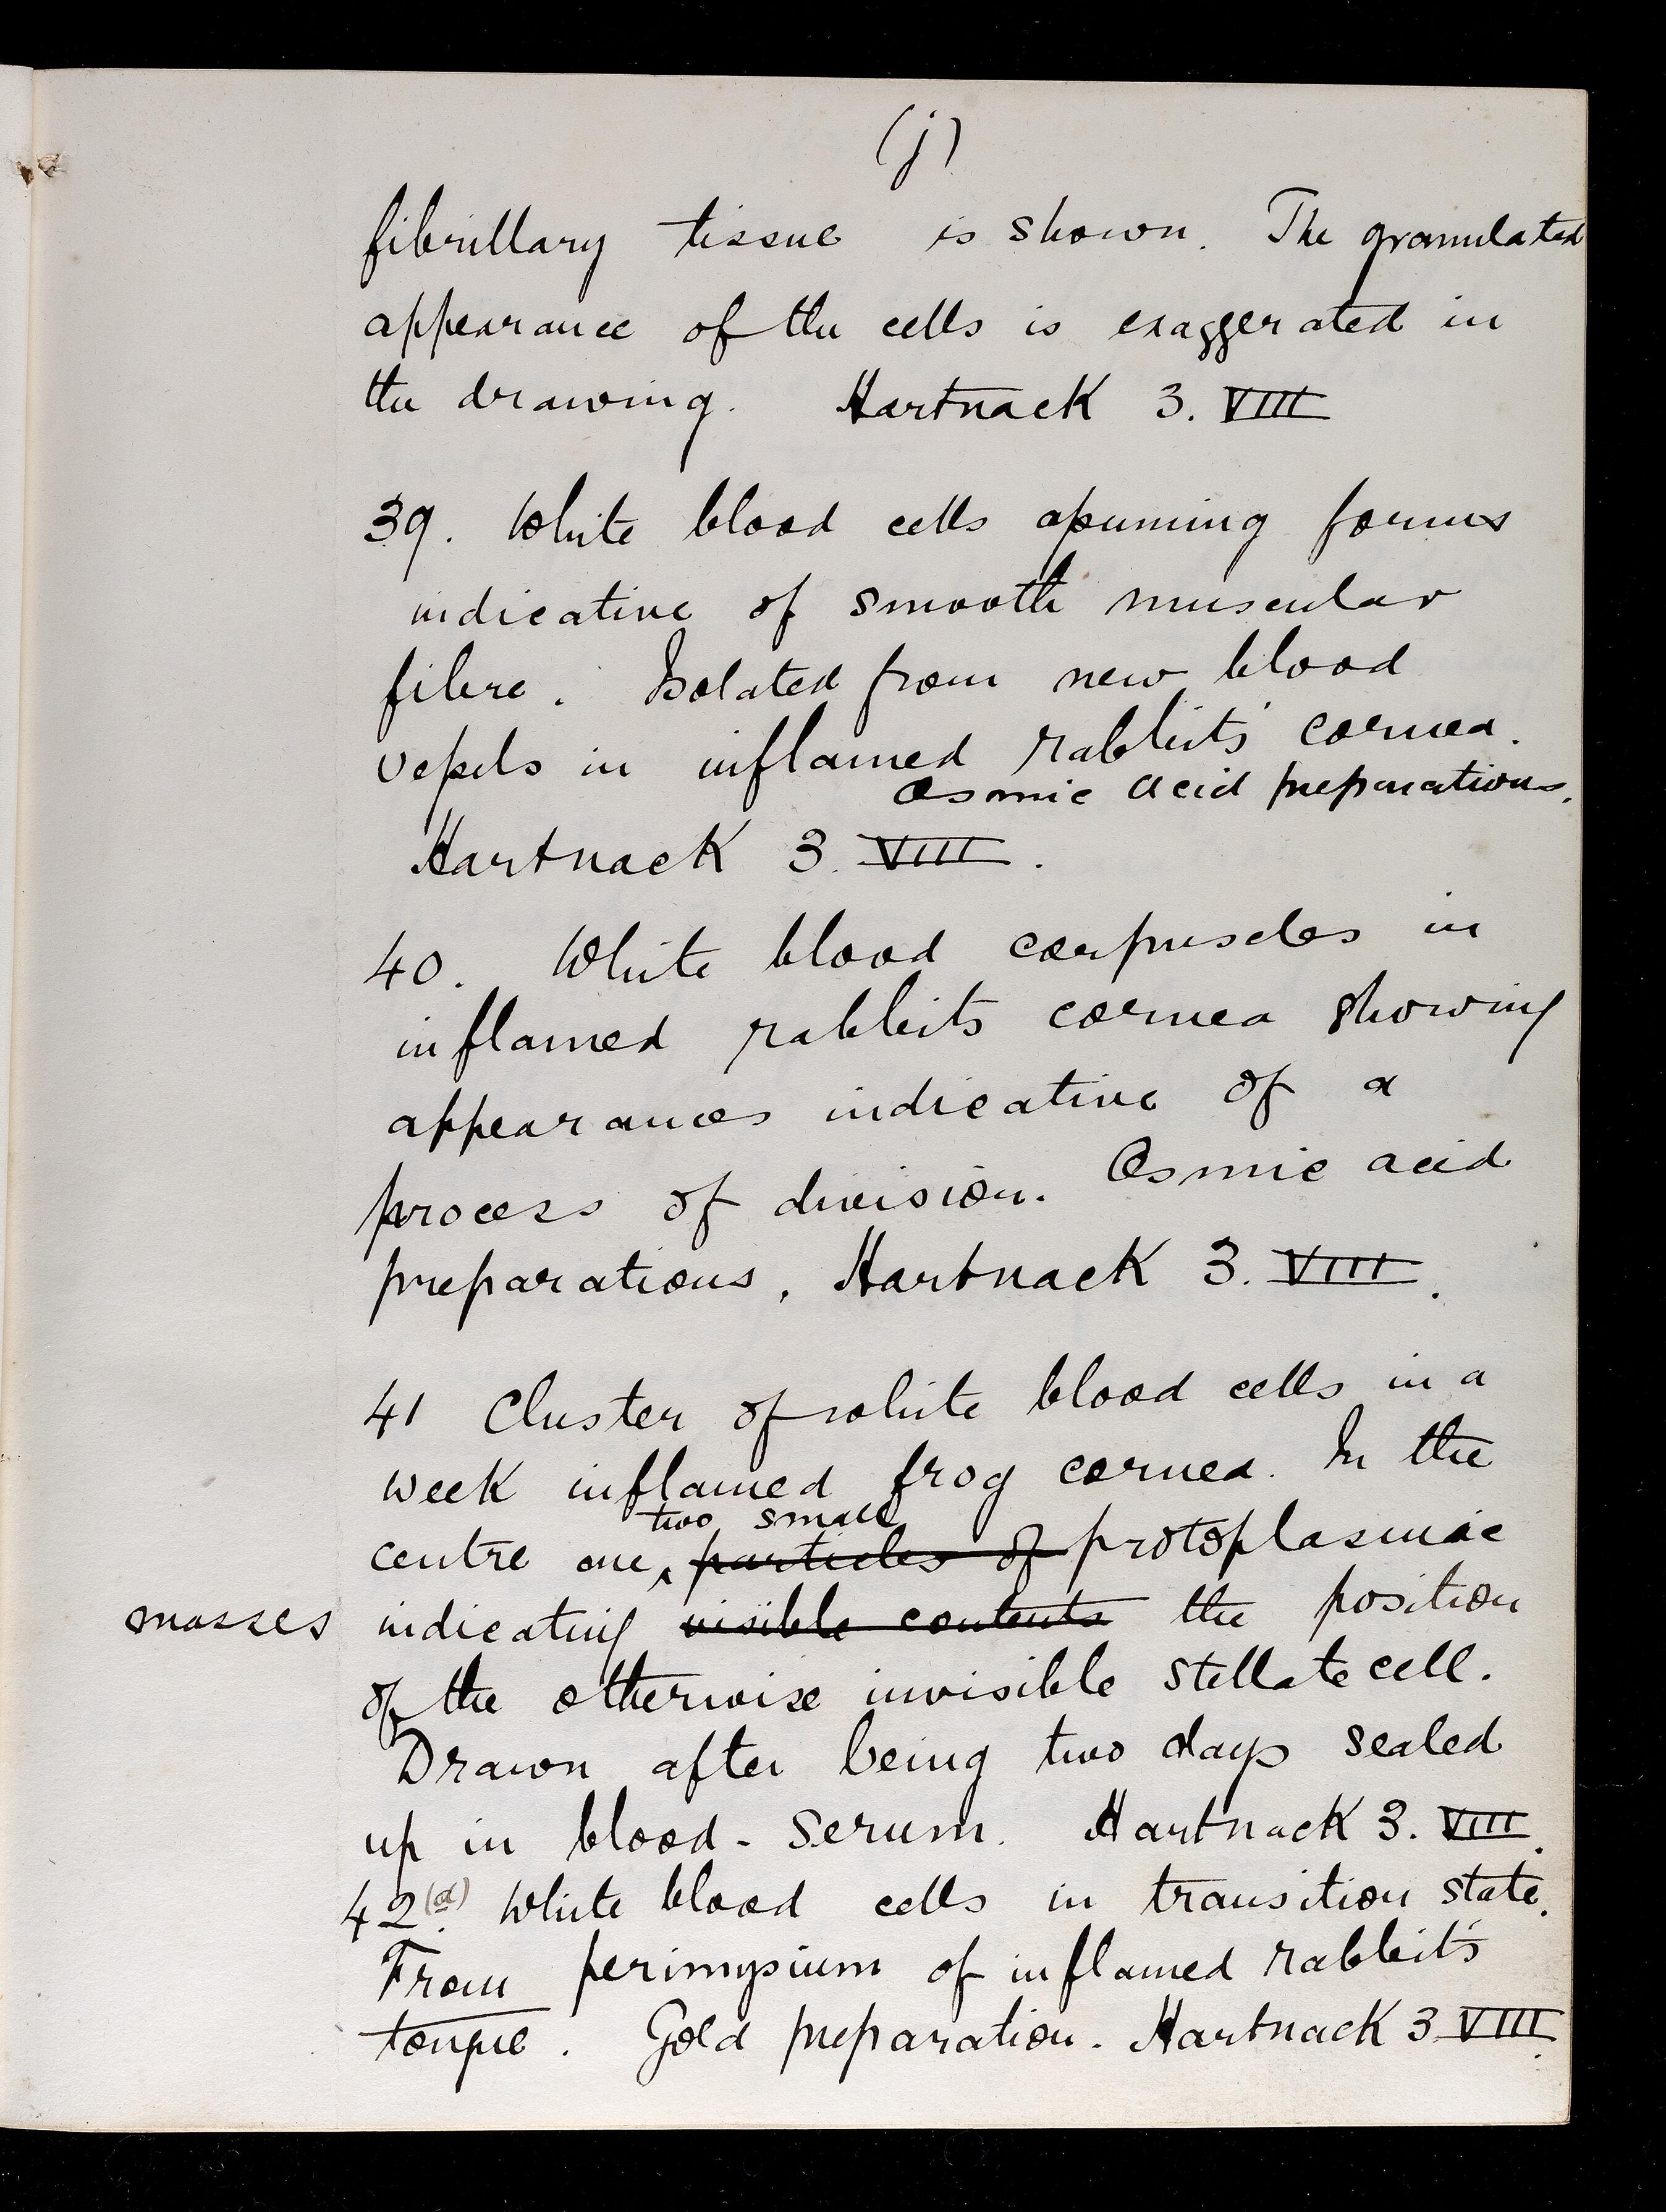 (j)
fibrillary tissue is shown. The granulated
appearance of the cells is exaggerated in
the drawing. Hartnack 3. VIII
39. White blood cells assuming forms
indicative of smooth muscular
fibre. Isolated from new blood
vessels in inflamed rabbits' cornea.
Osmic acid preparations.
Hartnack 3. VIII.
40. White blood corpuscles in
inflamed rabbits cornea showing
appearances indicative of a
process of division. Osmic acid
preparations. Hartnack 3. VIII.
41 Cluster of white blood cells in a
week inflamed frog cornea. In the
two small
centre are particles of protoplasmic
masses indicating visible contents the position
of the otherwise invisible stellate cell.
Drawn after being two days sealed
up in blood-serum. Hartnack 3. VIII.
42(a). White blood cells in transition state.
From perimysium of inflamed rabbit's
tongue. Gold preparation. Hartnack 3 VIII.